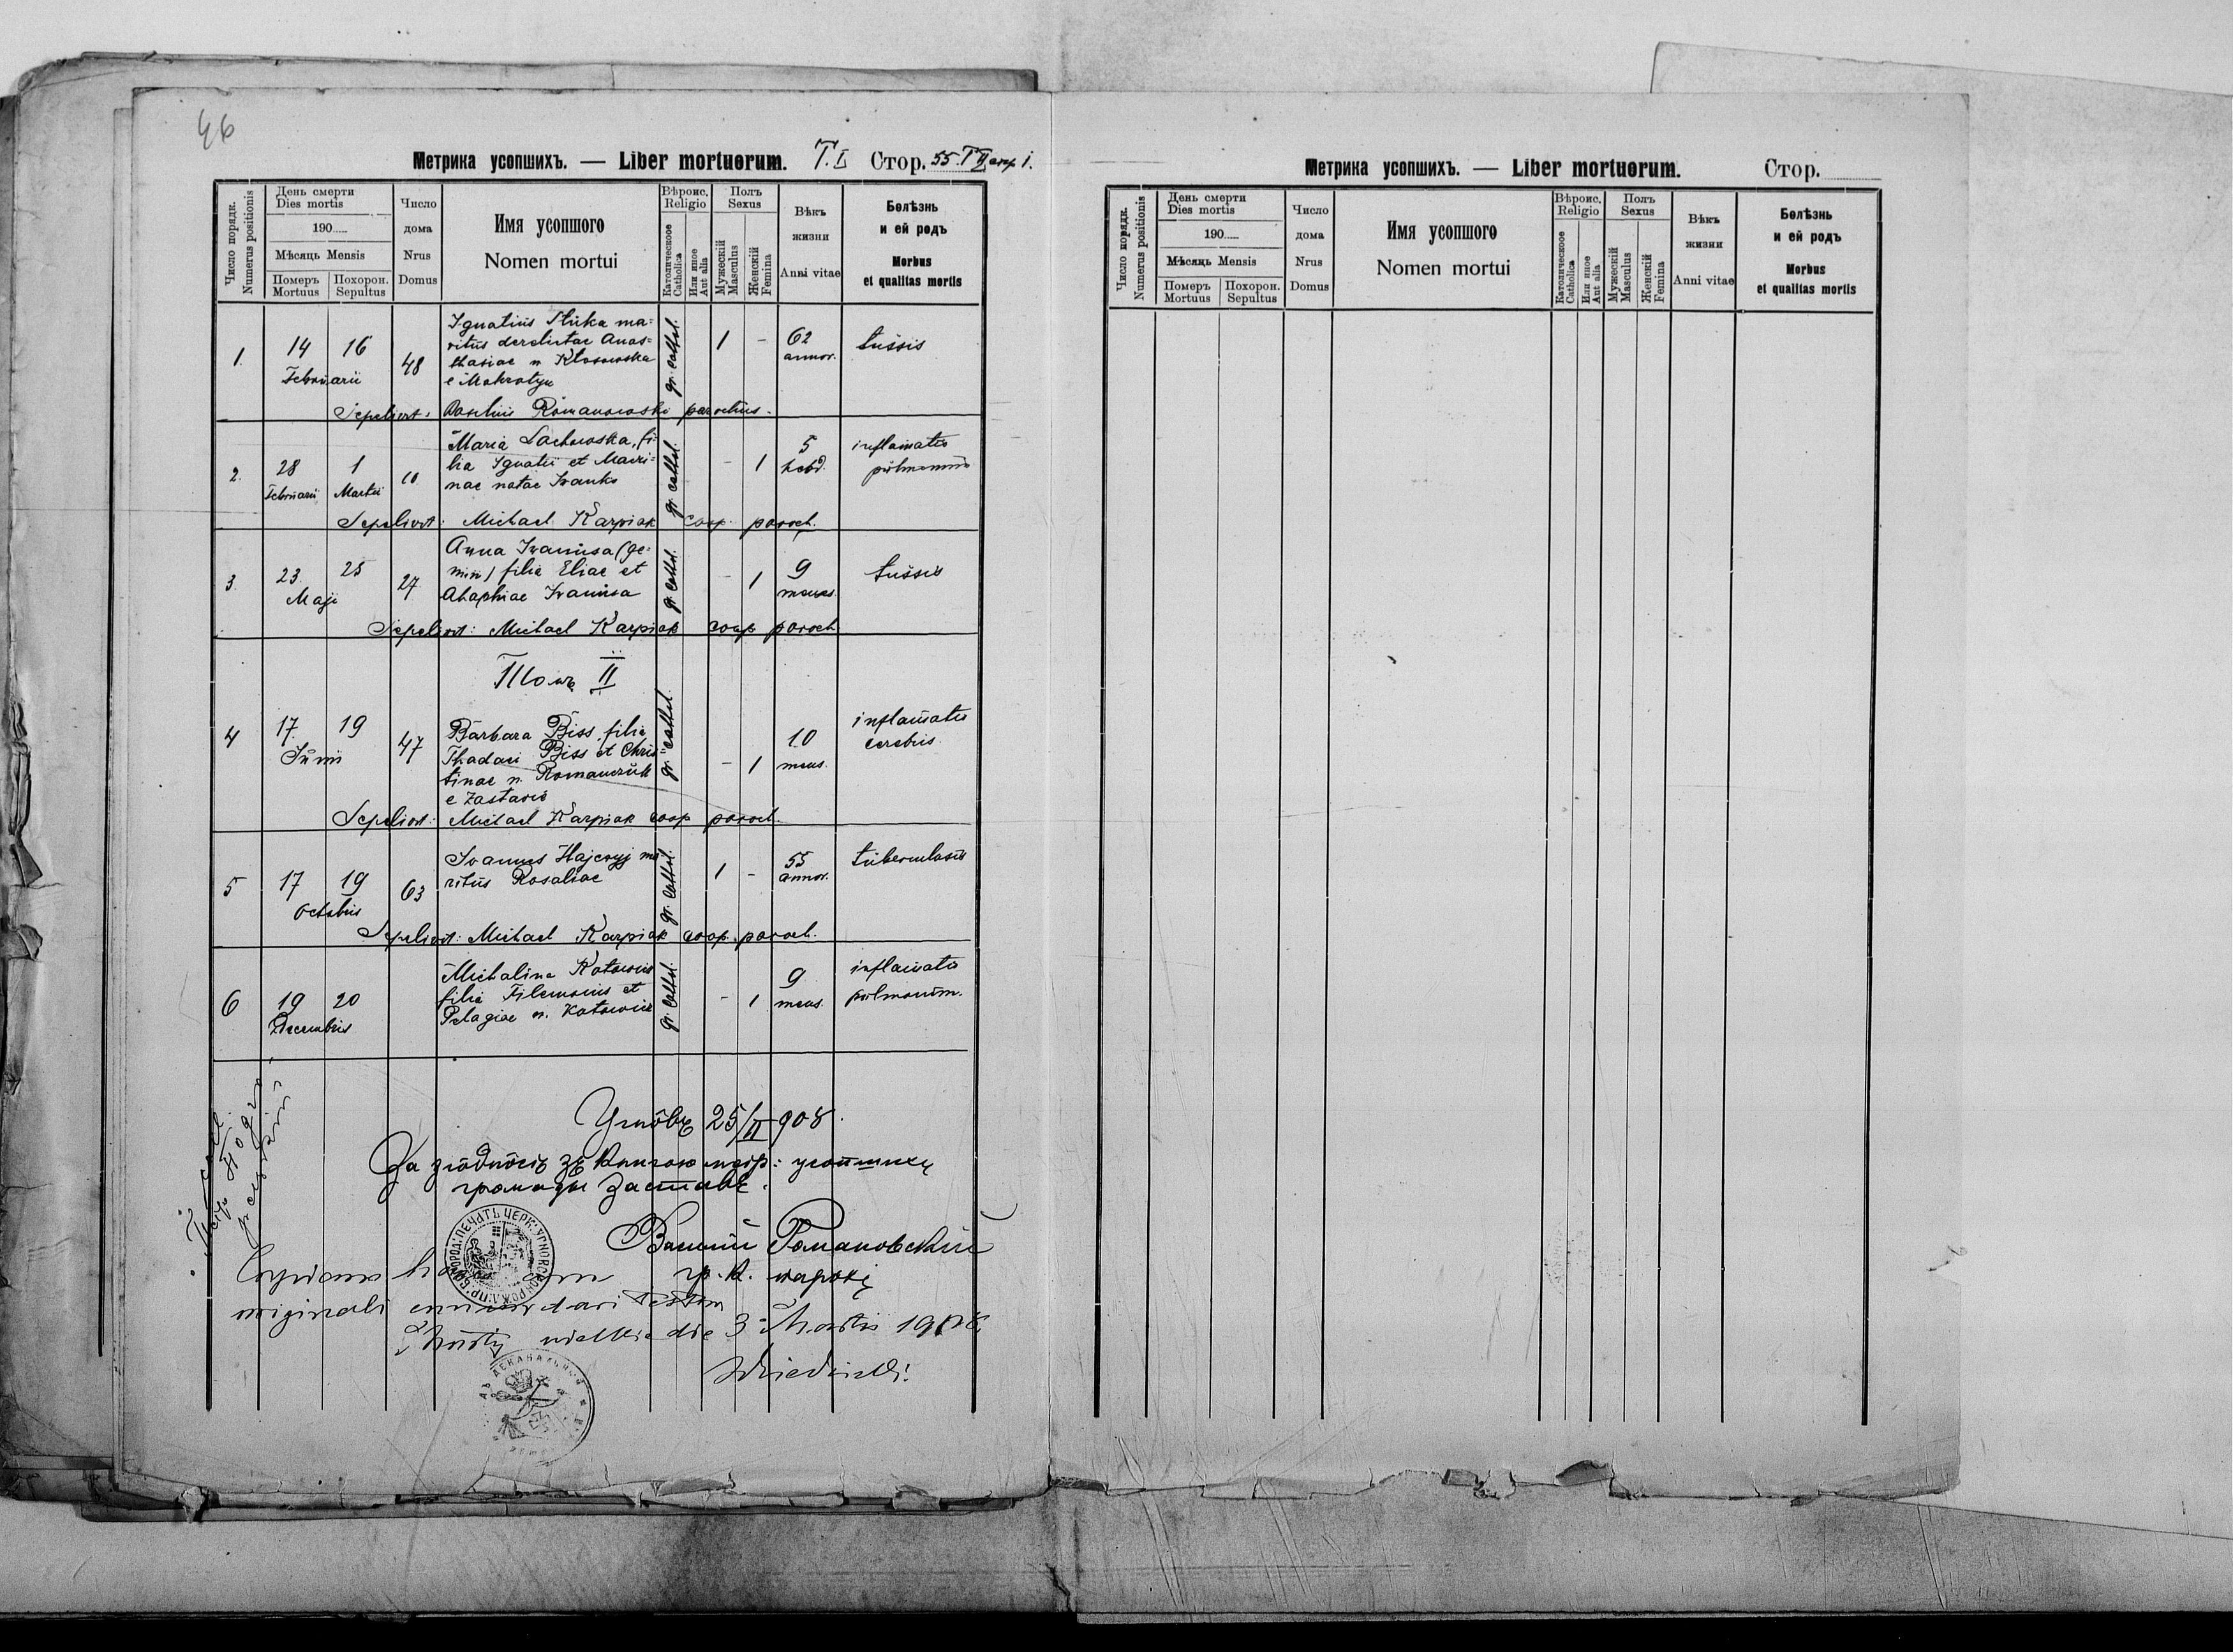 46
Метрика усопшихъ. — Liber mortuorum. T. I Стор. 55. T II стор 1.
Число порядк.
Numerus positionis
День смерти
Dies mortis
190
Мѣсяць Mensis
Померъ
Mortuus
Похорон.
Sepultus
Число
дома
Nrus
Domus
Имя усопшого
Nomen mortui
Вѣроис.
Religio
Католическоое
Catholica
Или иное
Aut alia
Полъ
Sexus
Мужескій
Masculus
Женскій
Femina
Вѣкъ
жизни
Anni vitae
Болѣзнь
и ей родъ
Morbus
et qualitas mortis
1. 14 16 Februarii 48
Ignatius Stuka ma=
ritus derelictae Anas=
thasiae n Kłosowska
e Mokrotyn
gr. cathol. 1 – 62 annor. tussis
Sepelivit: Basilius Romanowski parochus.
2. 28 Februarii 1 Martii 10
Maria Lachowska, fi=
lia Ignatii et Mari=
nae natae Iwanko
gr. cathol. – 1 5 hebd. inflamatio pulmonum
Sepelivit: Michael Karpiak coop. paroch.
3. 23 25 Maji 27
Anna Iwanusa (ge=
mini) filia Eliae et
Ahaphiae Iwanusa
gr. cathol. – 1 9 menses tussis
Sepelivit: Michael Karpiak coop paroch
Томъ II
4 17 19 Junii 47
Barbara Biss filia
Thadaei Biss et Chris
tinae n. Romanczuk
e Zastavie
gr. cathol. – 1 10 mens. inflamatio cerebris
Sepelivit: Michael Karpiak coop paroch.
5 17 19 Octobris 63
Ioannes Hajewyj ma
ritus Rosaliae
gr. cathol. 1 – 55 annor. tuberculosis
Sepelivit: Michael Karpiak coop. paroch.
6 19 20 Decembris
Michalina Kotowicz
filia Filemonis et
Pelagiae n. Kotowicz
gr. cathol. – 1 9 mens. inflamatio pulmonum.
Угнôвъ 25/II 908.
За згôднôсть зъ Книгою метр: усопшихъ
громады Заставе.
Василій Романовскій
гр. к. парохъ
originali
die 3 Martii 1908
Метрика усопшихъ. — Liber mortuorum. Стор.
Число порядк.
Numerus positionis
День смерти
Dies mortis
190
Мѣсяць Mensis
Померъ
Mortuus
Похорон.
Sepultus
Число
дома
Nrus
Domus
Имя усопшого
Nomen mortui
Вѣроис.
Religio
Католическоое
Catholica
Или иное
Aut alia
Полъ
Sexus
Мужескій
Masculus
Женскій
Femina
Вѣкъ
жизни
Anni vitae
Болѣзнь
и ей родъ
Morbus
et qualitas mortis